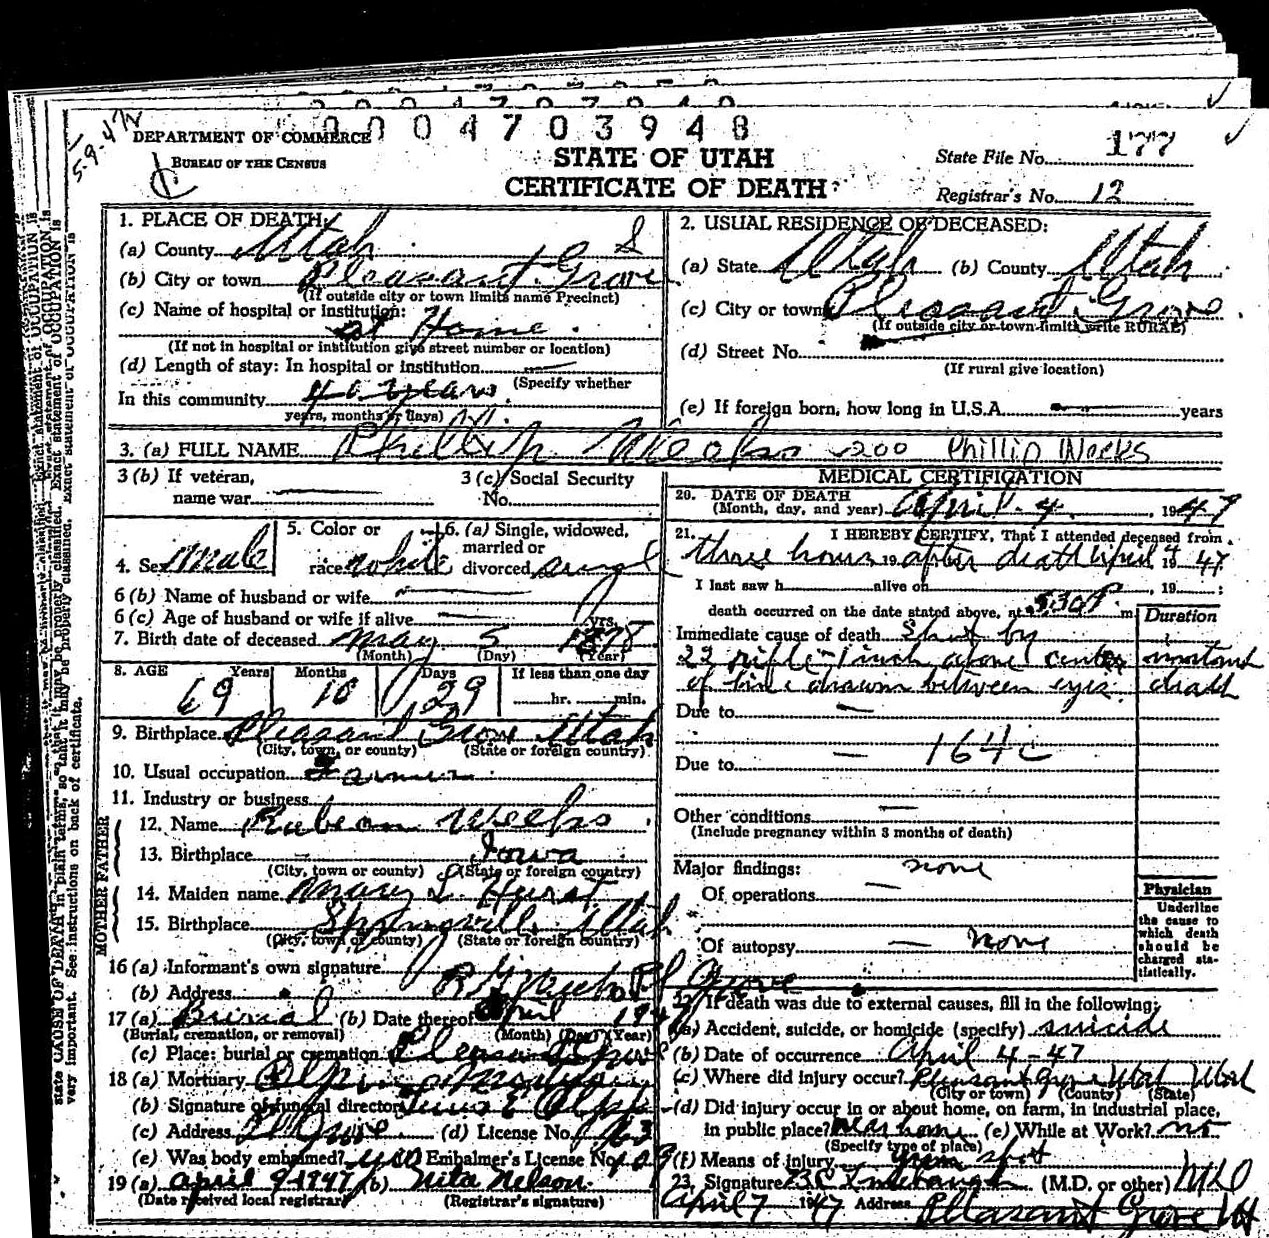 5-9-47
DEPARTMENT OF COMMERCE
BUREAU OF THE CENSUS
0004703948
STATE OF UTAH
CERTIFICATE OF DEATH
State File No. 177
Registrar's No. 12
1. PLACE OF DEATH:
(a) County Utah
(b) City or town Pleasant Grove
(If outside city or town limits name Precinct)
(c) Name of hospital or institution:
at Home
(If not in hospital or institution give street number or location)
(d) Length of stay: In hospital or institution
(Specify whether
In this community years
years, months or days)
2. USUAL RESIDENCE OF DECEASED:
(a) State Utah (b) County Utah
(c) City or town Pleasant Grove
(If outside city or town limits write RURAL)
(d) Street No.
(If rural give location)
(e) If foreign born, how long in U.S.A. years
3. (a) FULL NAME Phillip Weeks 200 Phillip Weeks
3 (b) If veteran,
name war
3 (c) Social Security
No.
4. Sex male
5. Color or
race white
6. (a) Single, widowed,
married or
divorced single
6 (b) Name of husband or wife
6 (c) Age of husband or wife if alive yrs.
7. Birth date of deceased May 5
(Month) (Day) (Year)
8. AGE Years Months Days If less than one day
69 10 29 hr. min.
9. Birthplace Pleasant Grove Utah
(City, town, or county) (State or foreign country)
10. Usual occupation Farmer
11. Industry or business
FATHER
12. Name Weeks
13. Birthplace Iowa
(City, town or county) (State or foreign country)
MOTHER
14. Maiden name Mary L. Hurst
15. Birthplace Springville Utah
(City, town or county) (State or foreign country)
16 (a) Informant's own signature
(b) Address Pl Grove
17 (a) Burial (b) Date thereof April 1947
(Burial, cremation, or removal) (Month) (Day) (Year)
(c) Place: burial or cremation Pleasant Grove
18 (a) Mortuary
(b) Signature of funeral director
(c) Address Pl Grove (d) License No.
(e) Was body embalmed? yes Embalmer's License No.
19 (a) April 9 1947 (b) Nita Nelson
(Date received local registrar) (Registrar's signature)
MEDICAL CERTIFICATION
20. DATE OF DEATH
(Month, day, and year) April 4, 1947
21. I HEREBY CERTIFY, That I attended deceased from
three hours 19 after death April 4 1947
I last saw h alive on , 19 ;
death occurred on the date stated above, at 530 P. m.
Duration
Immediate cause of death Shot by
22 rifle - 1 inch above center instant
of line drawn between eyes death
Due to
164c
Due to
Other conditions
(Include pregnancy within 3 months of death)
Major findings: none
Of operations
Of autopsy none
Physician
Underline
the cause to
which death
should be
charged sta-
tistically.
22. If death was due to external causes, fill in the following:
(a) Accident, suicide, or homicide (specify) suicide
(b) Date of occurrence April 4-47
(c) Where did injury occur? Pleasant Grove Utah Utah
(City or town) (County) (State)
(d) Did injury occur in or about home, on farm, in industrial place,
in public place? near home (e) While at Work? no
(Specify type of place)
(f) Means of injury gun shot
23. Signature (M.D. or other) MD
April 7 1947 Address Pleasant Grove Ut